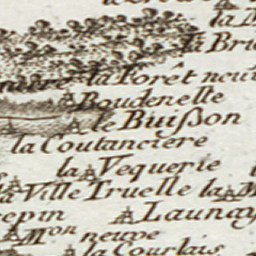 la Bri
la Forêt neuv
Boudenelle
le Buisson
la Coutanciere
la Vequerie
la Ville Truelle la
cepin Launay
Mon neuve
la Courlais